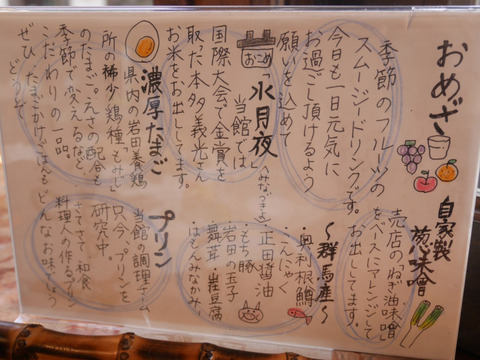 おめざ
季節のフルーツの
スムージードリンクです。
今日も一日元気に
お過ごし頂けるよう
願いを込めて
自家製
葱味噌
売店のねぎ油味噌
をベースにアレンジして
お出ししてます。
おこめ
「水月夜」
当館では
国際大会で金賞を
取った本多義光さん
お米をお出ししてます。
〜群馬産〜
・奥利根鱒
・こんにゃく
・正田醤油
・もち豚
・岩田の玉子
・舞茸
濃厚たまご
県内の岩田養鶏
所の稀少鶏種"もみじ
のたまご。えさの配合も
季節で変えるなど、
こだわりの一品。
ぜひ、たまごかけごはんも
どうぞ
プリン
当館の調理チーム
只今、プリンを
研究中。
さてさて、和食
料理人の作るプリン
どんなお味でしょう